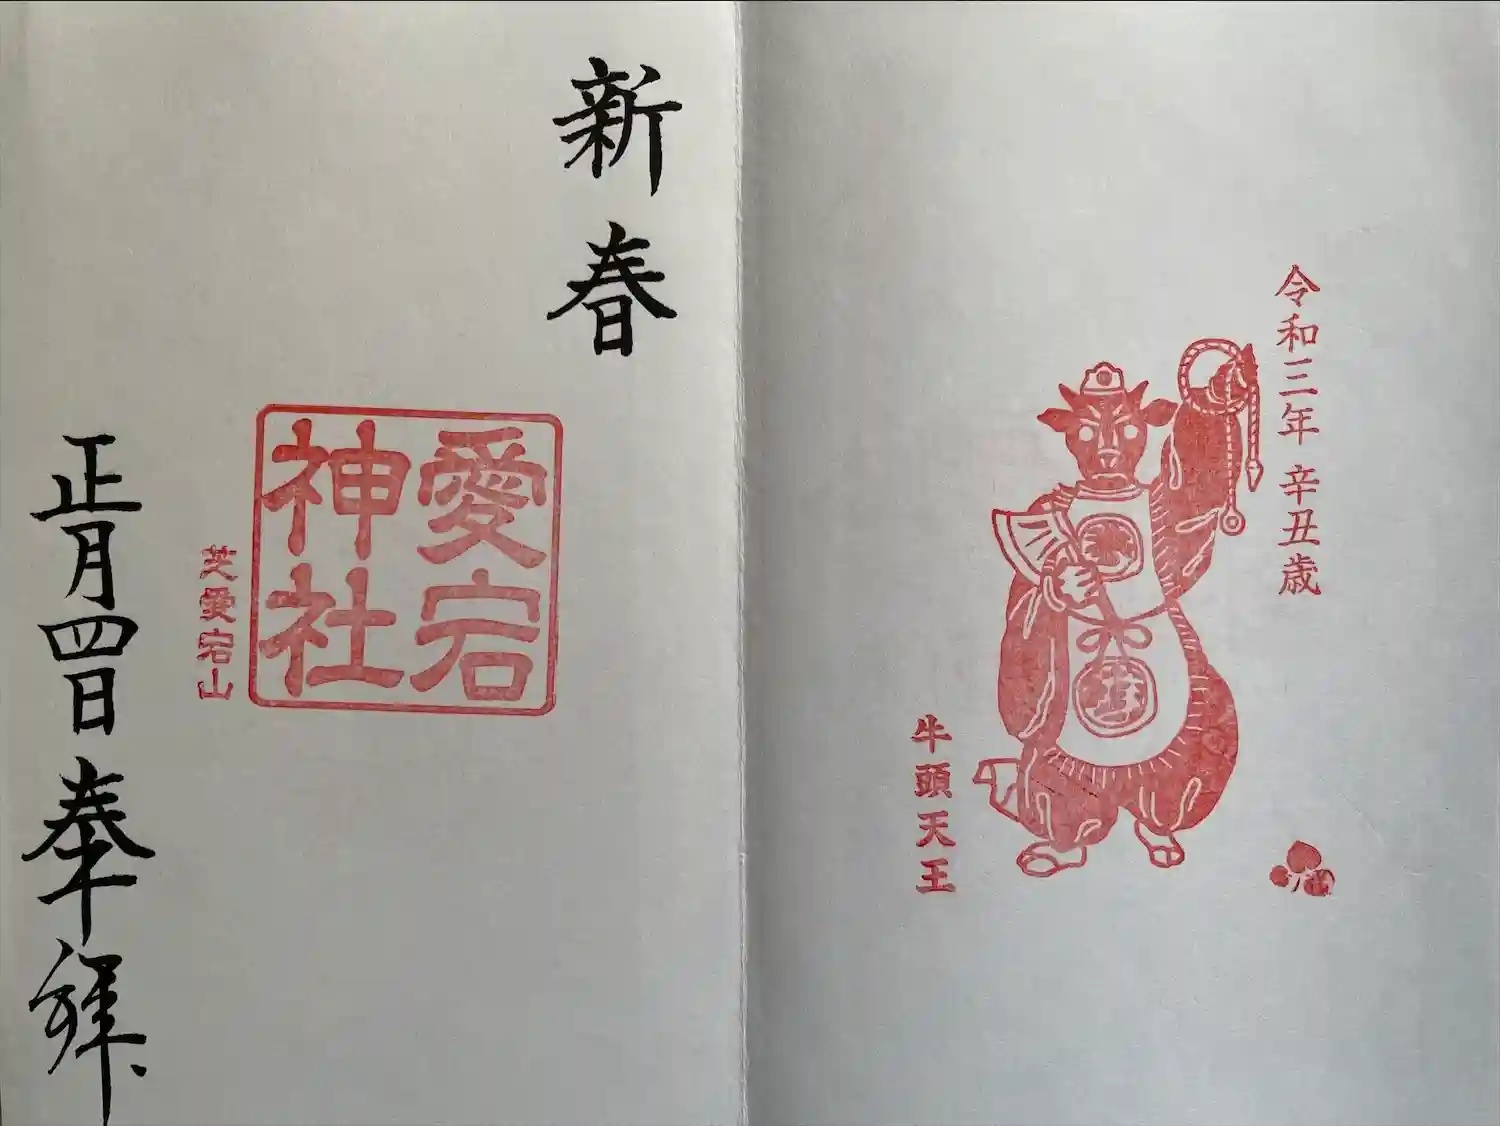 令和三年 辛丑歳
牛頭天王
新春
愛宕
神社
芝愛宕山
正月四日 奉拝